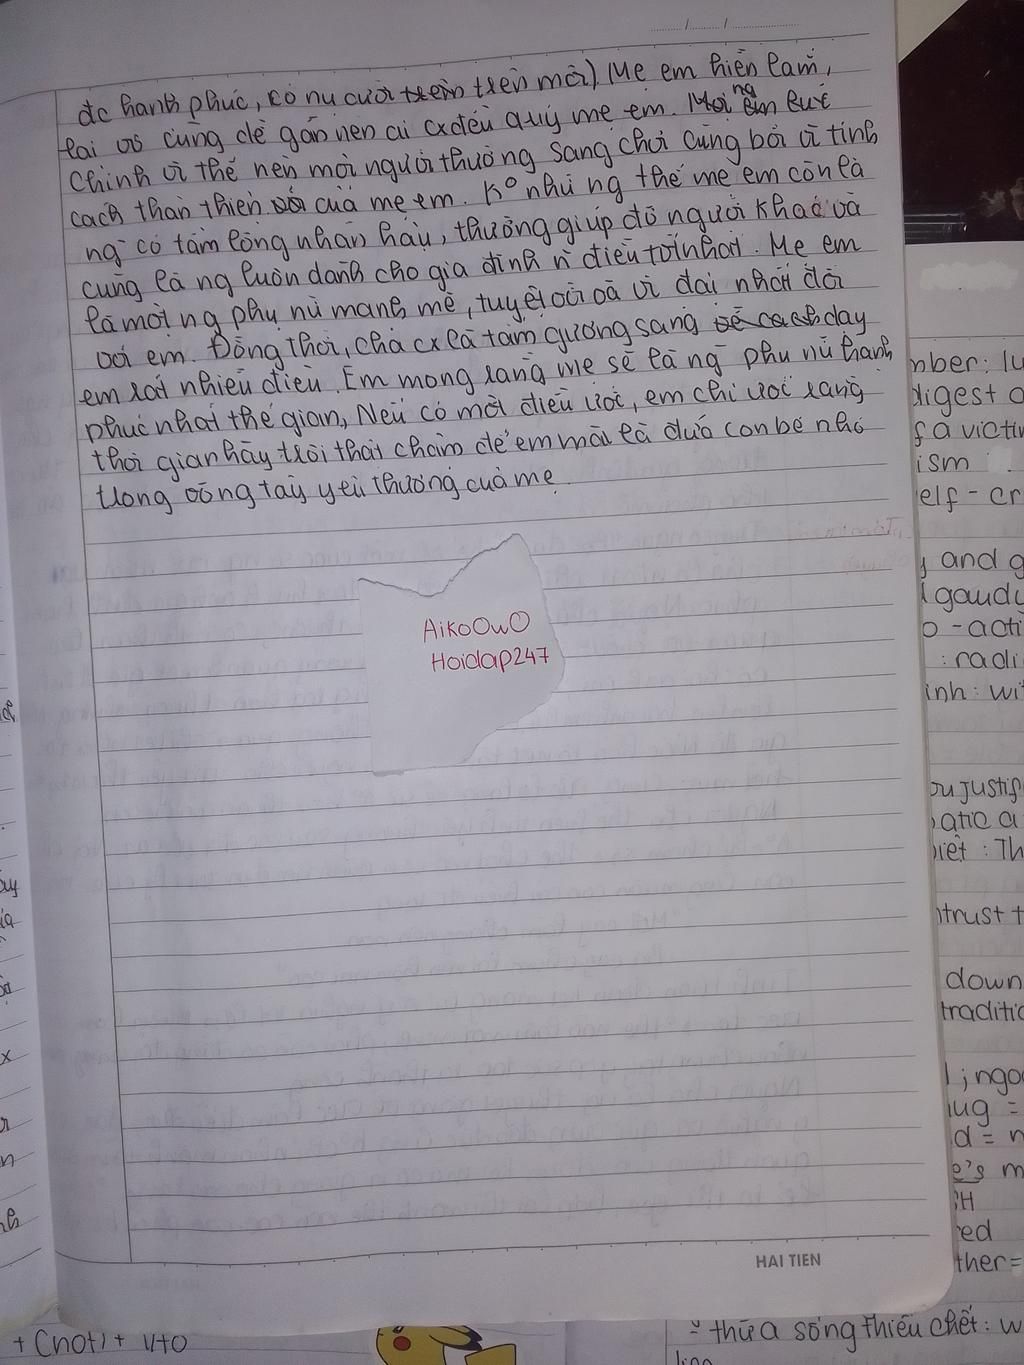 đc hạnh phúc, có nụ cười trên môi) Mẹ em hiền lắm,
lại vô cùng dễ gần nên ai cx đều quý mẹ em.
Chính vì thế nên mọi người thường sang chơi cùng bởi vì tính
cách thân thiện của mẹ em. K° những thế mẹ em còn là
ng~ có tấm lòng nhân hậu, thường giúp đỡ người khác và
cũng là ng luôn dành cho gia đình n~ điều tốt nhất. Mẹ em
là một ng phụ nữ mạnh mẽ, tuyệt vời và vĩ đại nhất đối
với em. Đồng thời, cx là tấm gương sáng dạy
em rất nhiều điều. Em mong rằng mẹ sẽ là ng~ phụ nữ hạnh
phúc nhất thế gian, Nếu có một điều ước, em chỉ ước rằng
thời gian hãy trôi thật chậm để em mãi là đứa con bé nhỏ
trong vòng tay yêu thương của mẹ.
AikoOwO
Hoidap247
HAI TIEN
mber: lu
digest a
f a victi
ism
elf - cr
y and g
gaudy
o - acti
: radi
inh: wi
ou justif
atic a
biết : Th
ntrust t
down
traditio
; ingo
lug =
d = n
e's m
CH
red
ther =
thừa sống thiếu chết: w
+ (not) + Vto